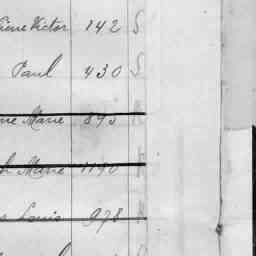 Victor 142 S
Paul 430 S
Marie 895
Marie 1190
Louis 978